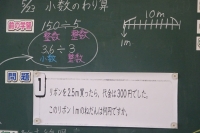 5/23 小数のわり算
前の学習
150÷5
整数 整数
3.6÷3
小数 整数
10m
1m
問題
1
リボンを2.5m買ったら、代金は300円でした。
このリボン1mのねだんは何円ですか。